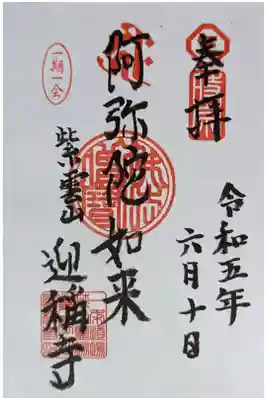 奉拝
令和五年
六月十日
阿弥陀如来
一期一会
紫雲山
迎称寺